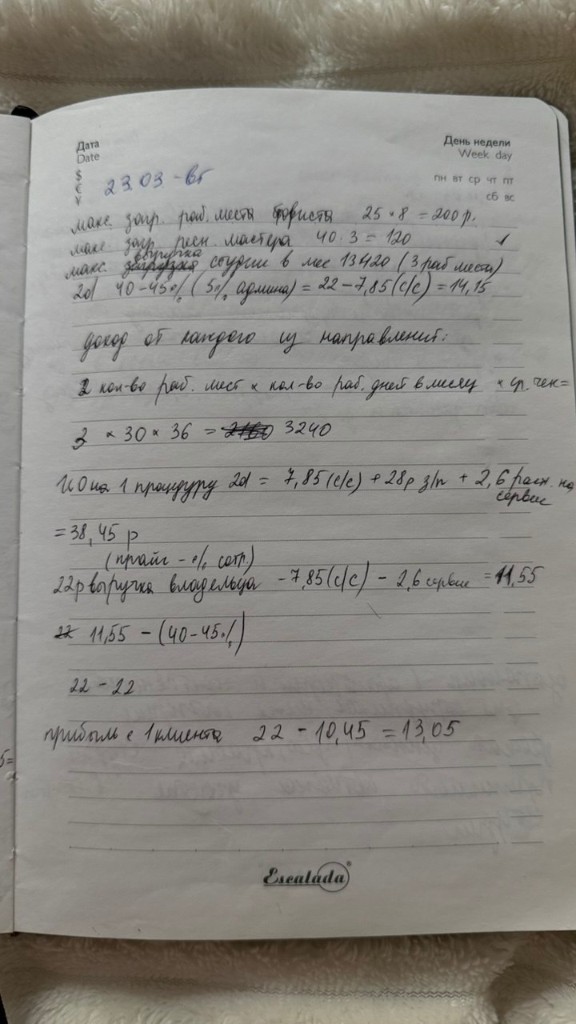 Дата
Date
День недели
Week day
$
€
¥
23.03 - вт
пн вт ср чт пт
сб вс
макс. загр. раб. места бровиста 25 * 8 = 200 р.
макс. загр. ресн. мастера 40 · 3 = 120
макс. выручка студии в мес 13420 (3 раб места)
2d 40-45% (5% админа) = 22 - 7,85 (с/с) = 14,15
доход от каждого из направлений:
2 кол-во раб. мест × кол-во раб. дней в месяц × ср. чек =
3 × 30 × 36 = 2160 3240
на 1 процедуру 2d = 7,85 (с/с) + 28р з/п + 2,6 расх. на
сервис
= 38,45 р
(прайс - % сотр.)
22р выручка владельца - 7,85 (с/с) - 2,6 сервис = 11,55
22 11,55 - (40-45%)
22 - 22
прибыль с 1 клиента 22 - 10,45 = 13,05
5=
Escalada®